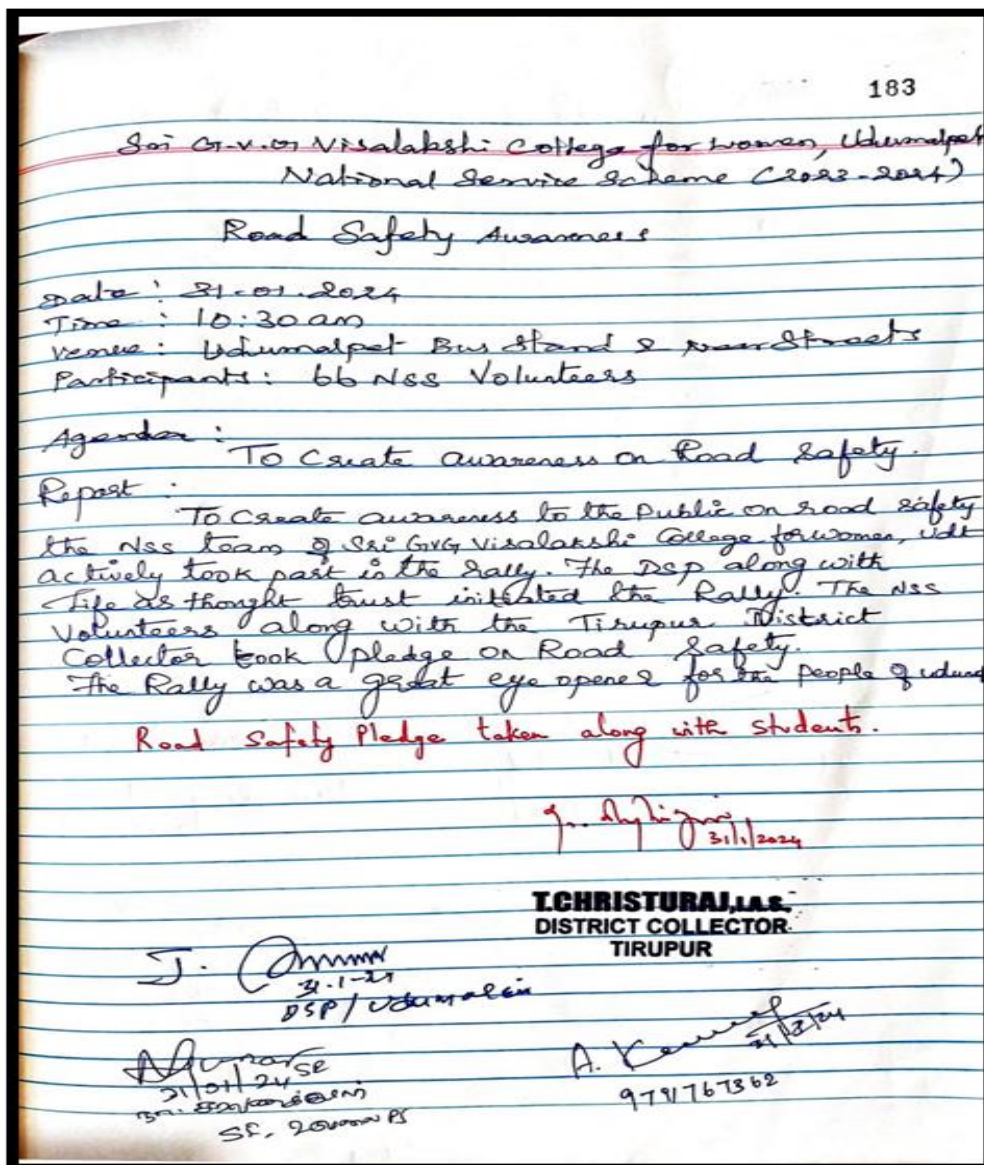 183
Sri G.V.G Visalakshi College for women, Udumalpet
National Service Scheme (2023-2024)
Road Safety Awareness
Date : 31.01.2024
Time : 10:30am
Venue : Udhumalpet Bus Stand & near Streets
Participants : 66 NSS Volunteers
Agenda :
To Create awareness on Road Safety.
Report :
To Create awareness to the Public on road safety
the NSS team of Sri GVG Visalakshi College for women, Udt
actively took part in the rally. The DSP along with
Life as thought trust initiated the Rally. The NSS
Volunteers along with the Tirupur District
Collector took pledge on Road Safety.
The Rally was a great eye opener for the people of
Road Safety Pledge taken along with students.
31/1/2024
T.CHRISTURAJ,I.A.S.
DISTRICT COLLECTOR
TIRUPUR
J.
31.1.24
DSP/
31/01/24
A.